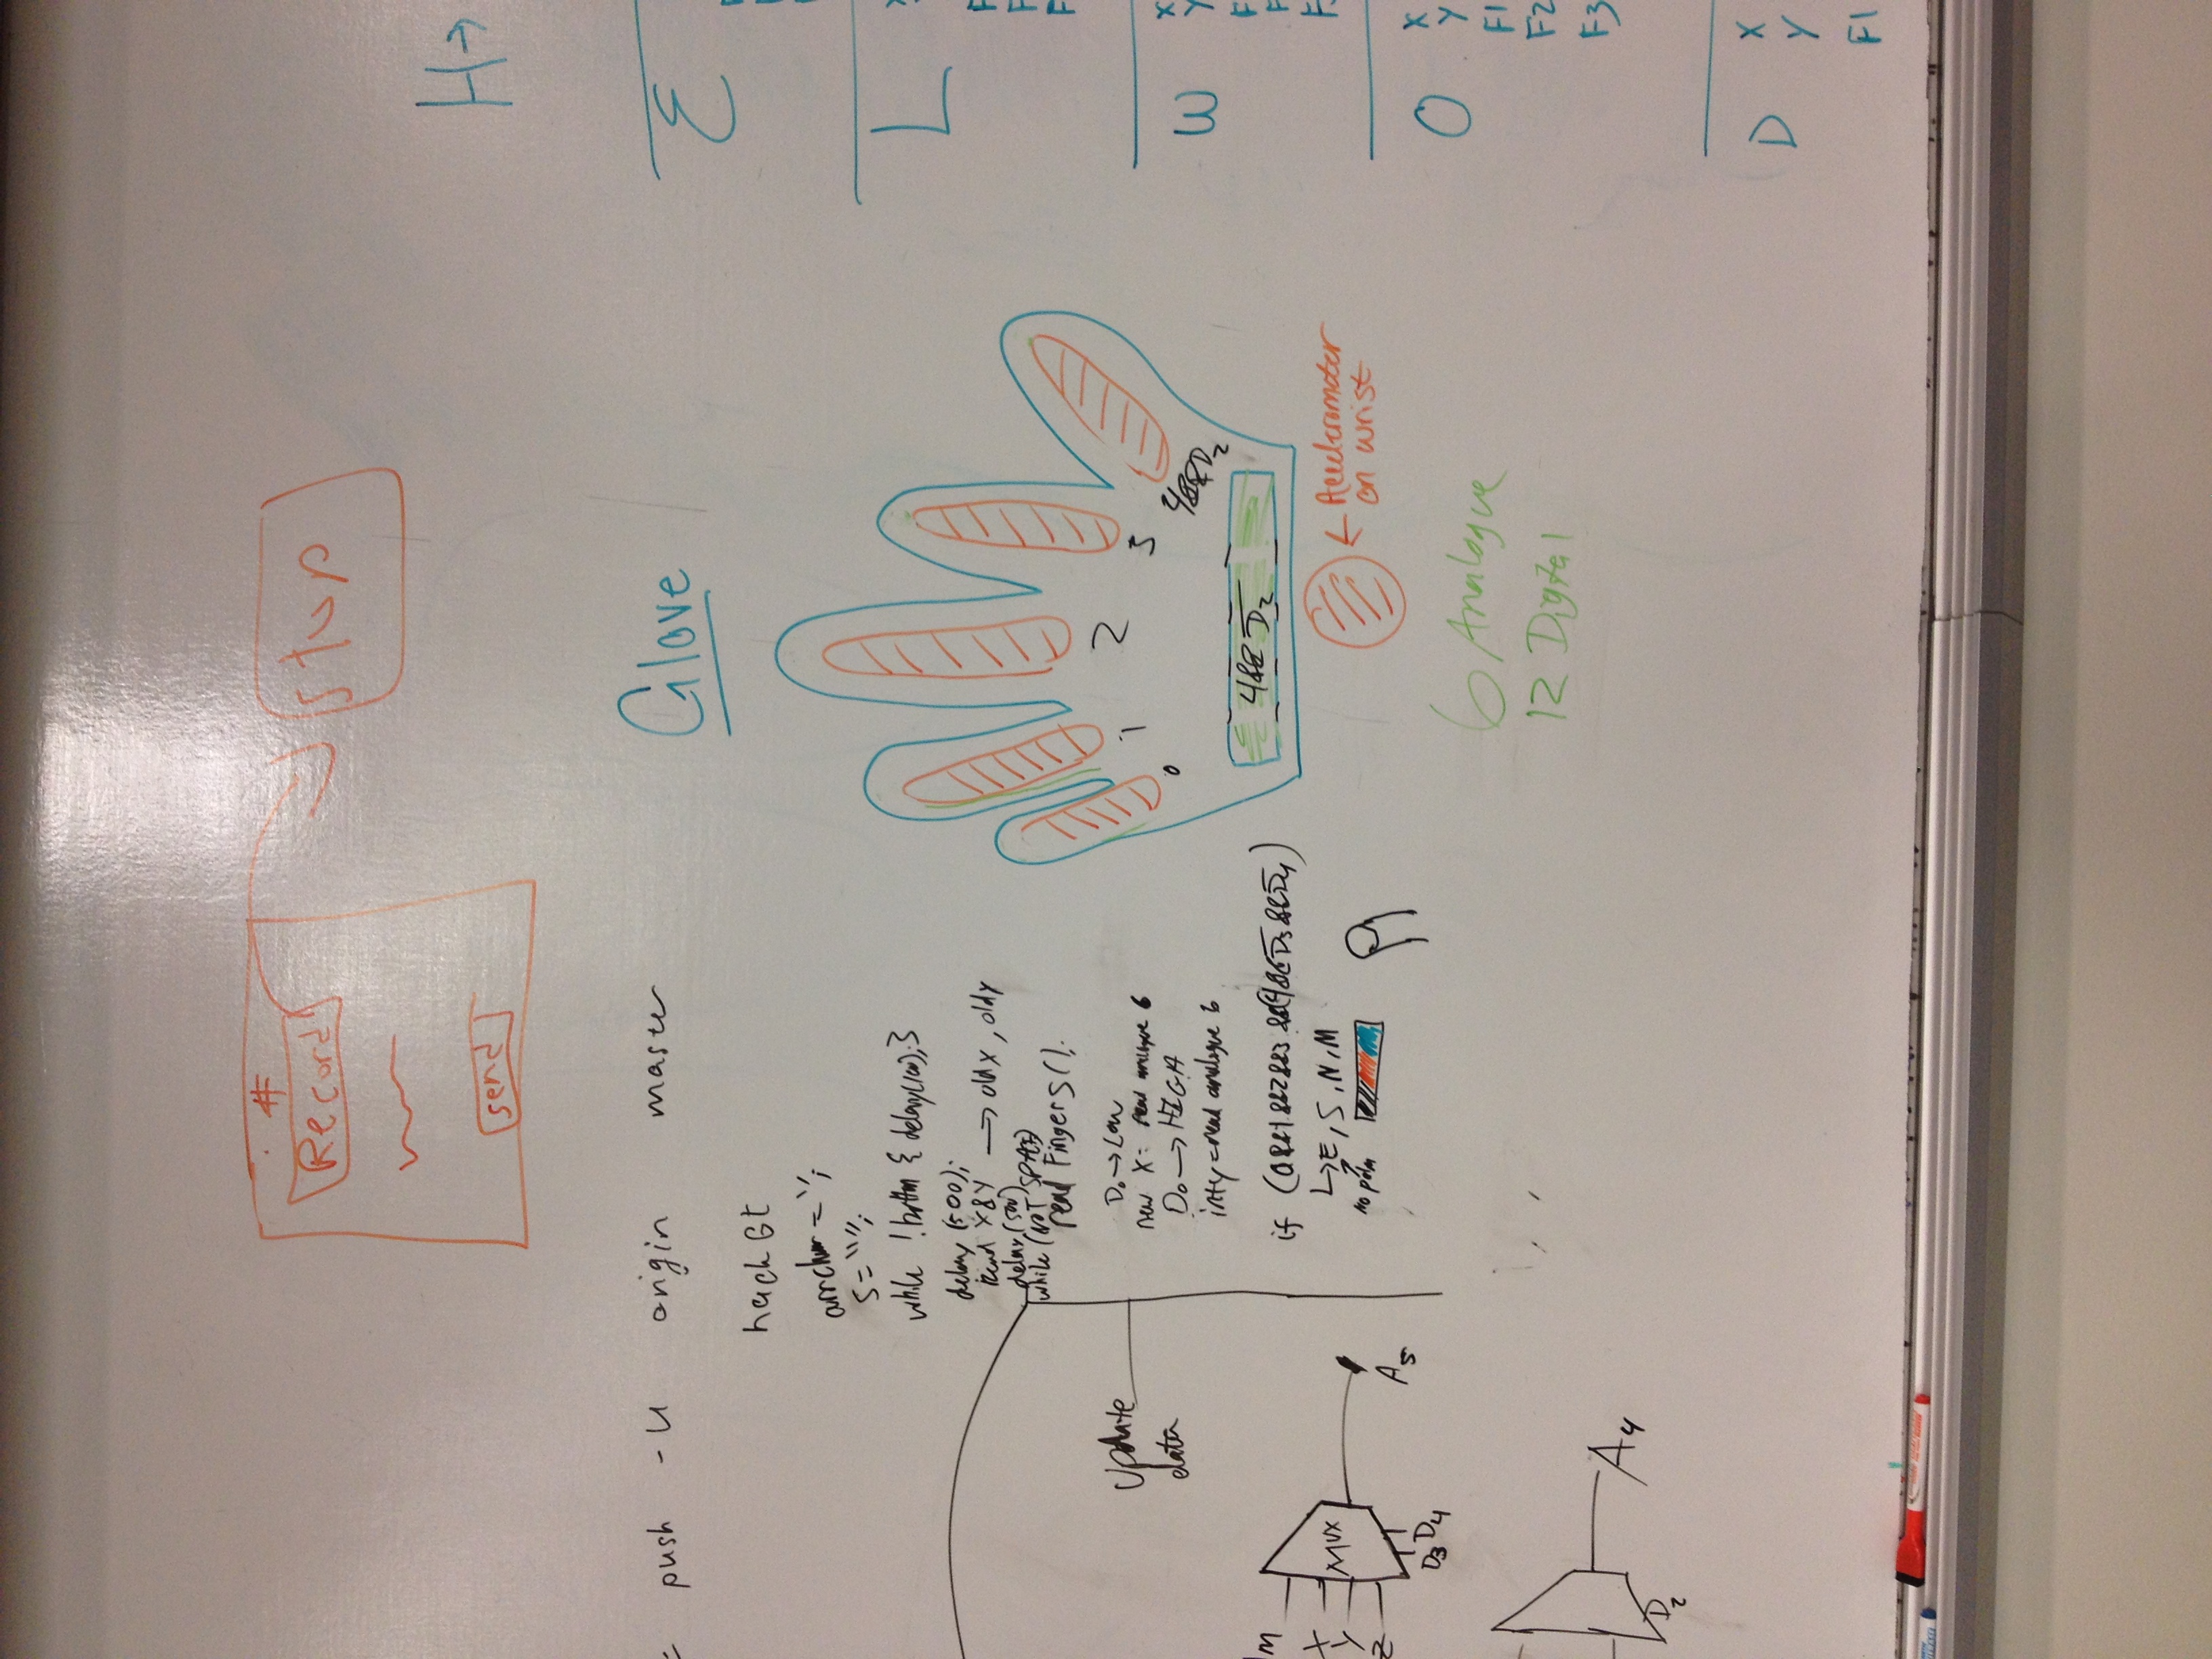 #
Record
send
stop
push -u origin master
hackGt
s="";
while !button { delay(100);}
delay (500);
read X&Y → oldx, oldy
delay (500)
while (NOT SPACE)
read Fingers();
D₀→Low
new X = read analogue 6
D₀→HIGH
int y = read analogue 6
if
↳E, S, N, M
no palm
Update
data
MUX
A₅
D₃ D₄
X
Y
Z
A₄
D₂
Glove
0
1
2
3
4&&D₂
4&&D̅₂
← Accelerometer
on wrist
6 Analogue
12 Digital
H→
E
L
W
X
Y
O
X
Y
F1
F2
F3
D
X
Y
F1